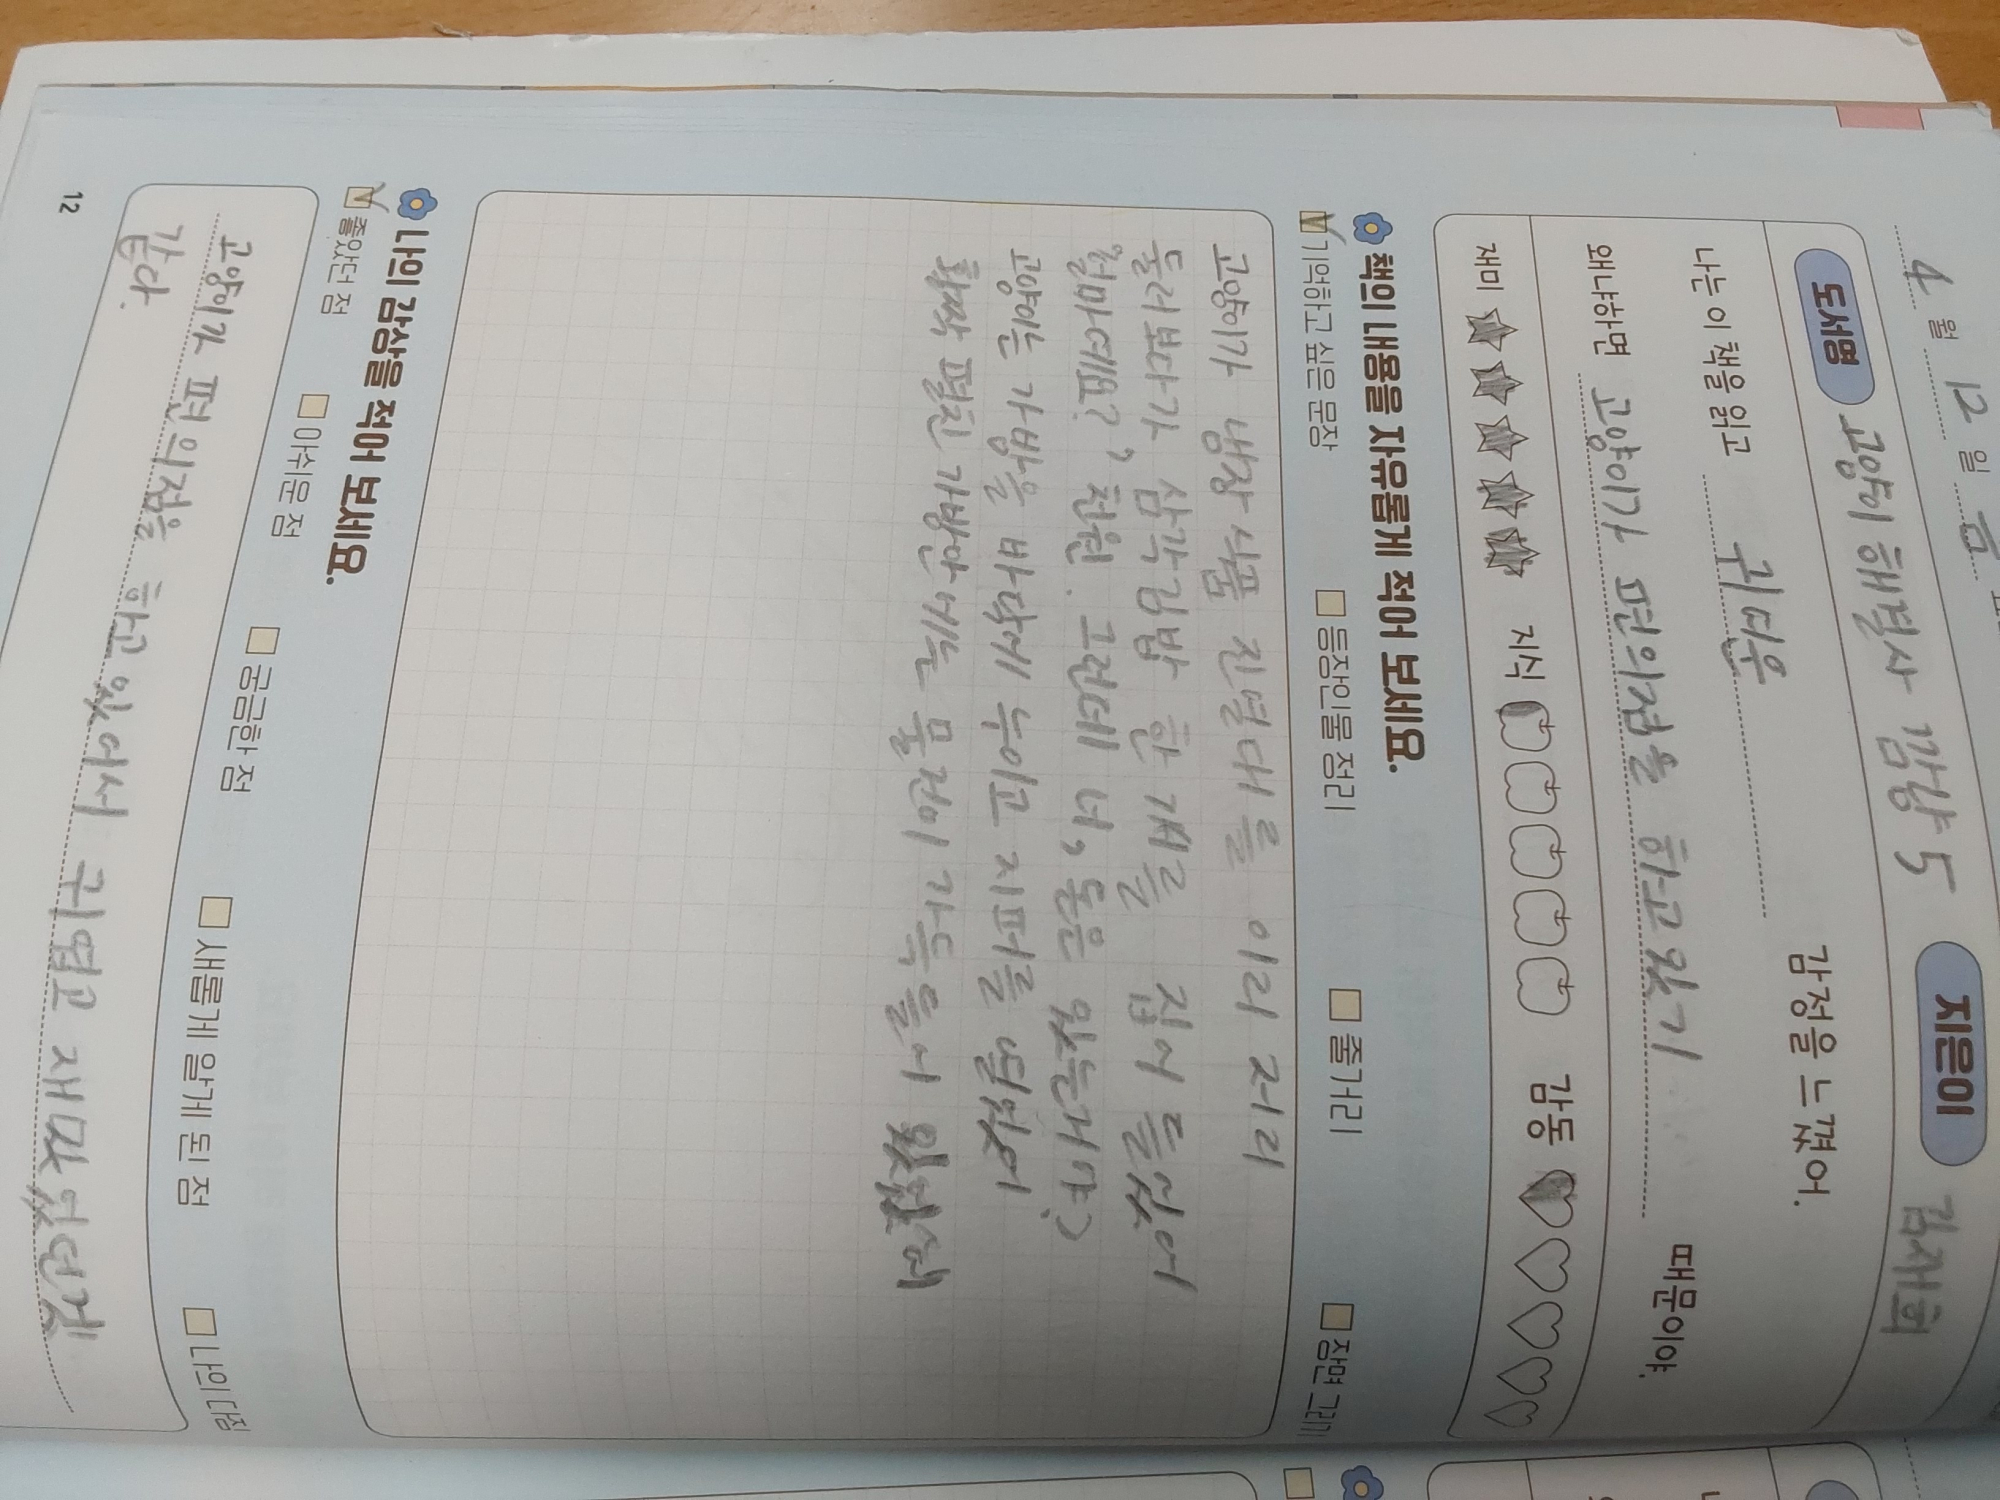 4 월 12 일 금
도서명 고양이 해결사 깜냥 5 지은이
나는 이 책을 읽고 귀여운 감정을 느꼈어.
왜냐하면 고양이가 편의점을 하고있기 때문이야.
재미 지식 감동
책의 내용을 자유롭게 적어 보세요.
기억하고 싶은 문장 등장인물 정리 줄거리 장면 그리기
고양이가 냉장 식품 진열대를 이리 저리
둘러보다가 삼각김밥 한 개를 집어 들었어
얼마예요?, 천원. 그런데 너, 돈은 있는거야?
고양이는 가방을 바닥에 누이고 지퍼를 열었어
활짝 펼친 가방안에는 물건이 가득들어 있었어
나의 감상을 적어 보세요.
좋았던 점 아쉬운 점 궁금한 점 새롭게 알게 된 점 나의 다짐
고양이가 편의점을 하고 있어서 귀엽고 재밌었던것
같다.
12